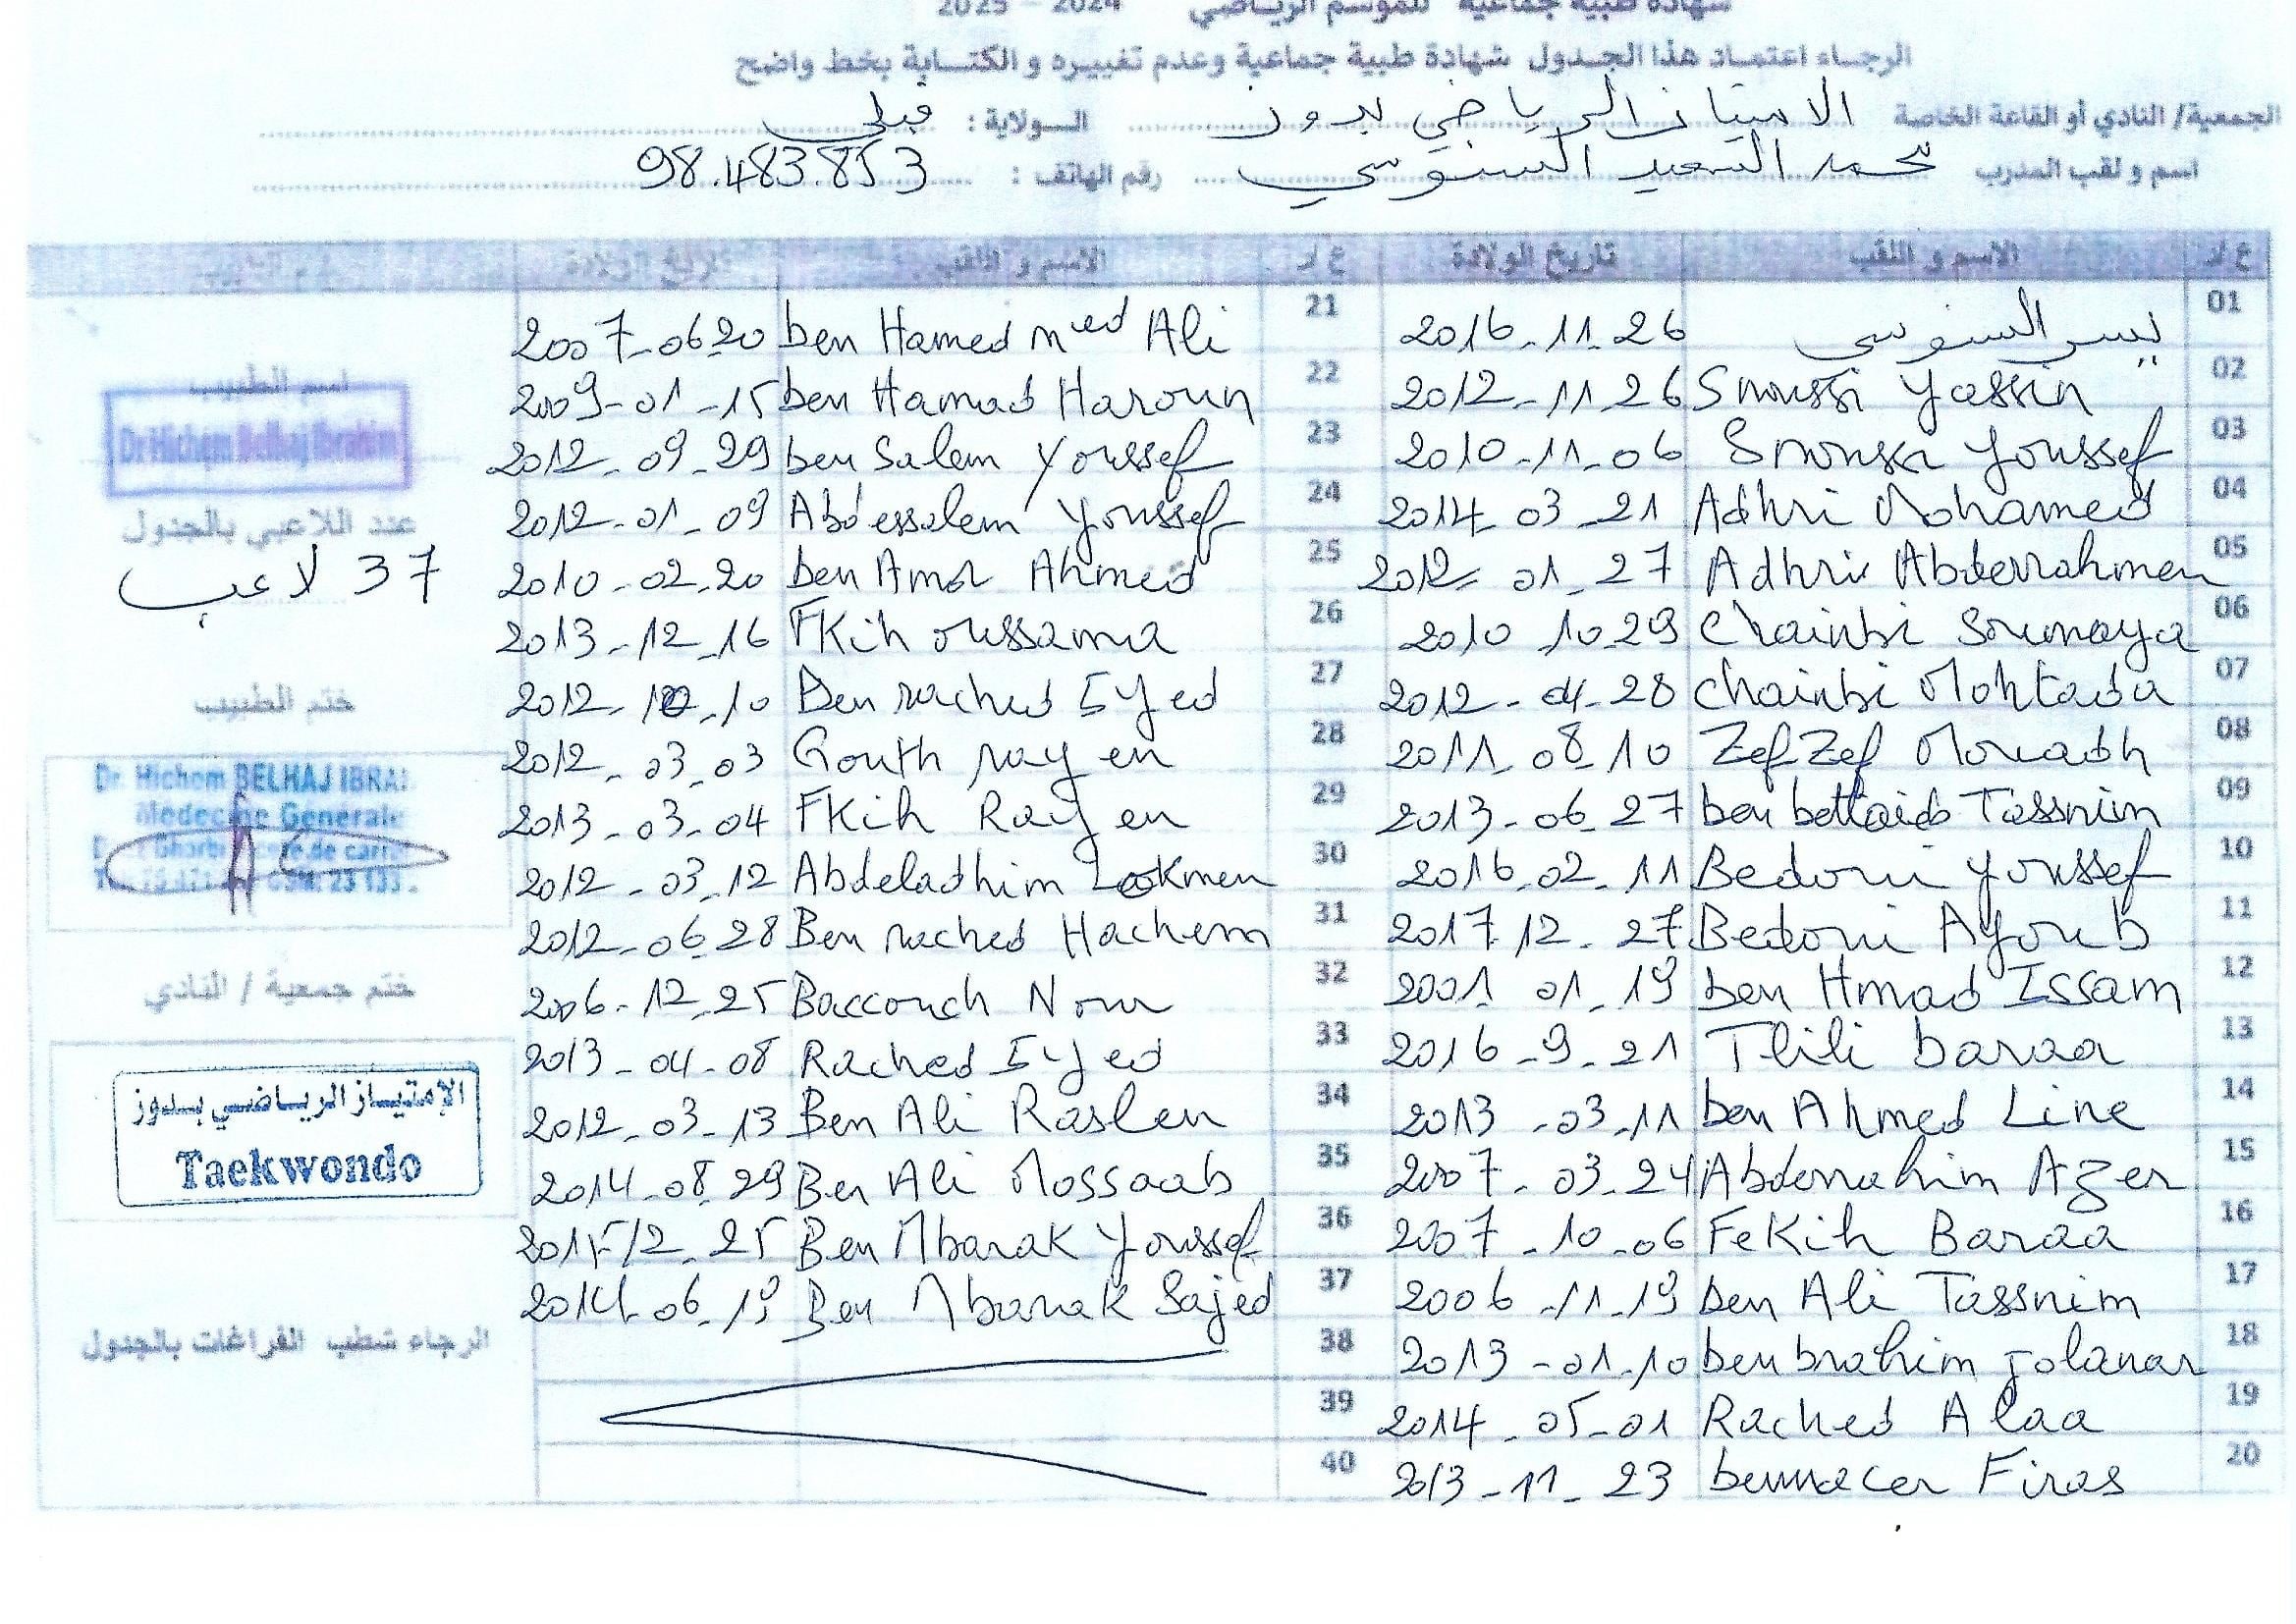 شهادة طبية جماعية للموسم الرياضي 2024 - 2025
الرجاء اعتماد هذا الجدول شهادة طبية جماعية وعدم تغييره و الكتابة بخط واضح
الجمعية/ النادي أو القاعة الخاصة الامتياز الرياضي بدوز الولاية : قبلي
اسم و لقب المدرب محمد السعيد السنوسي رقم الهاتف : 98.483.853
ع/ر الاسم و اللقب تاريخ الولادة ع/ر الاسم و اللقب تاريخ الولادة
01 يسر السنوسي 2016-11-26 21 ben Hamed Med Ali 2007-06-20
02 Snoussi Yassin 2012-11-26 22 ben Hamad Haroun 2009-01-15
03 Snoussi Youssef 2010-11-06 23 ben Salem Youssef 2012-09-29
04 Adhri Mohamed 2014-03-21 24 Abdessalem Youssef 2012-01-09
05 Adhri Abderrahmen 2012-01-27 25 ben Amor Ahmed 2010-02-20
06 Chainbi Soumaya 2010-10-29 26 FKih oussama 2013-12-16
07 Chainbi Mohtada 2012-04-28 27 Ben rached Eyed 2012-10
08 ZefZef Mouadh 2011-08-10 28 Gouth rayen 2012-03-03
09 ben bettaieb Tassnim 2013-06-27 29 FKih Rayen 2013-03-04
10 Bedoui Youssef 2016-02-11 30 Abdeladhim Lokmen 2012-03-12
11 Bedoui Ayoub 2017-12-27 31 Ben rached Hachem 2012-06-28
12 ben Hmad Issam 2001-01-19 32 Baccouch Nour 2006-12-25
13 Tlili baraa 2016-9-21 33 Rached Eyed 2013-04-08
14 ben Ahmed Line 2013-03-11 34 Ben Ali Raslen 2012-03-13
15 Abderrahim Azer 2007-03-24 35 Ben Ali Mossaab 2014-08-29
16 FeKih Baraa 2007-10-06 36 Ben Mbarak Youssef 25
17 ben Ali Tassnim 2006-11-19 37 Ben Mbarak Sajed 2014-06-19
18 ben brahim Jolanar 2013-01-10 38
19 Rached Alaa 2014-05-01 39
20 bennacer Firas 2013-11-23 40
اسم الطبيب
Dr Hichem Belhaj Ibrahim
عدد اللاعبي بالجدول
37 لاعب
ختم الطبيب
Dr. Hichem BELHAJ IBRA
Medecine Generale
ختم جمعية / النادي
الإمتياز الرياضي بدوز
Taekwondo
الرجاء شطب الفراغات بالجدول